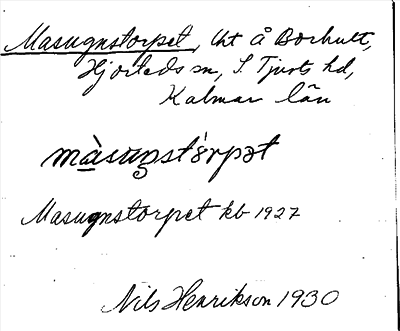 Masugnstorpet, tht å Borhult,
Hjorteds sn, S. Tjusts hd,
Kalmar län
màsuŋstórpət
Masugnstorpet kb 1927
Nils Henrikson 1930